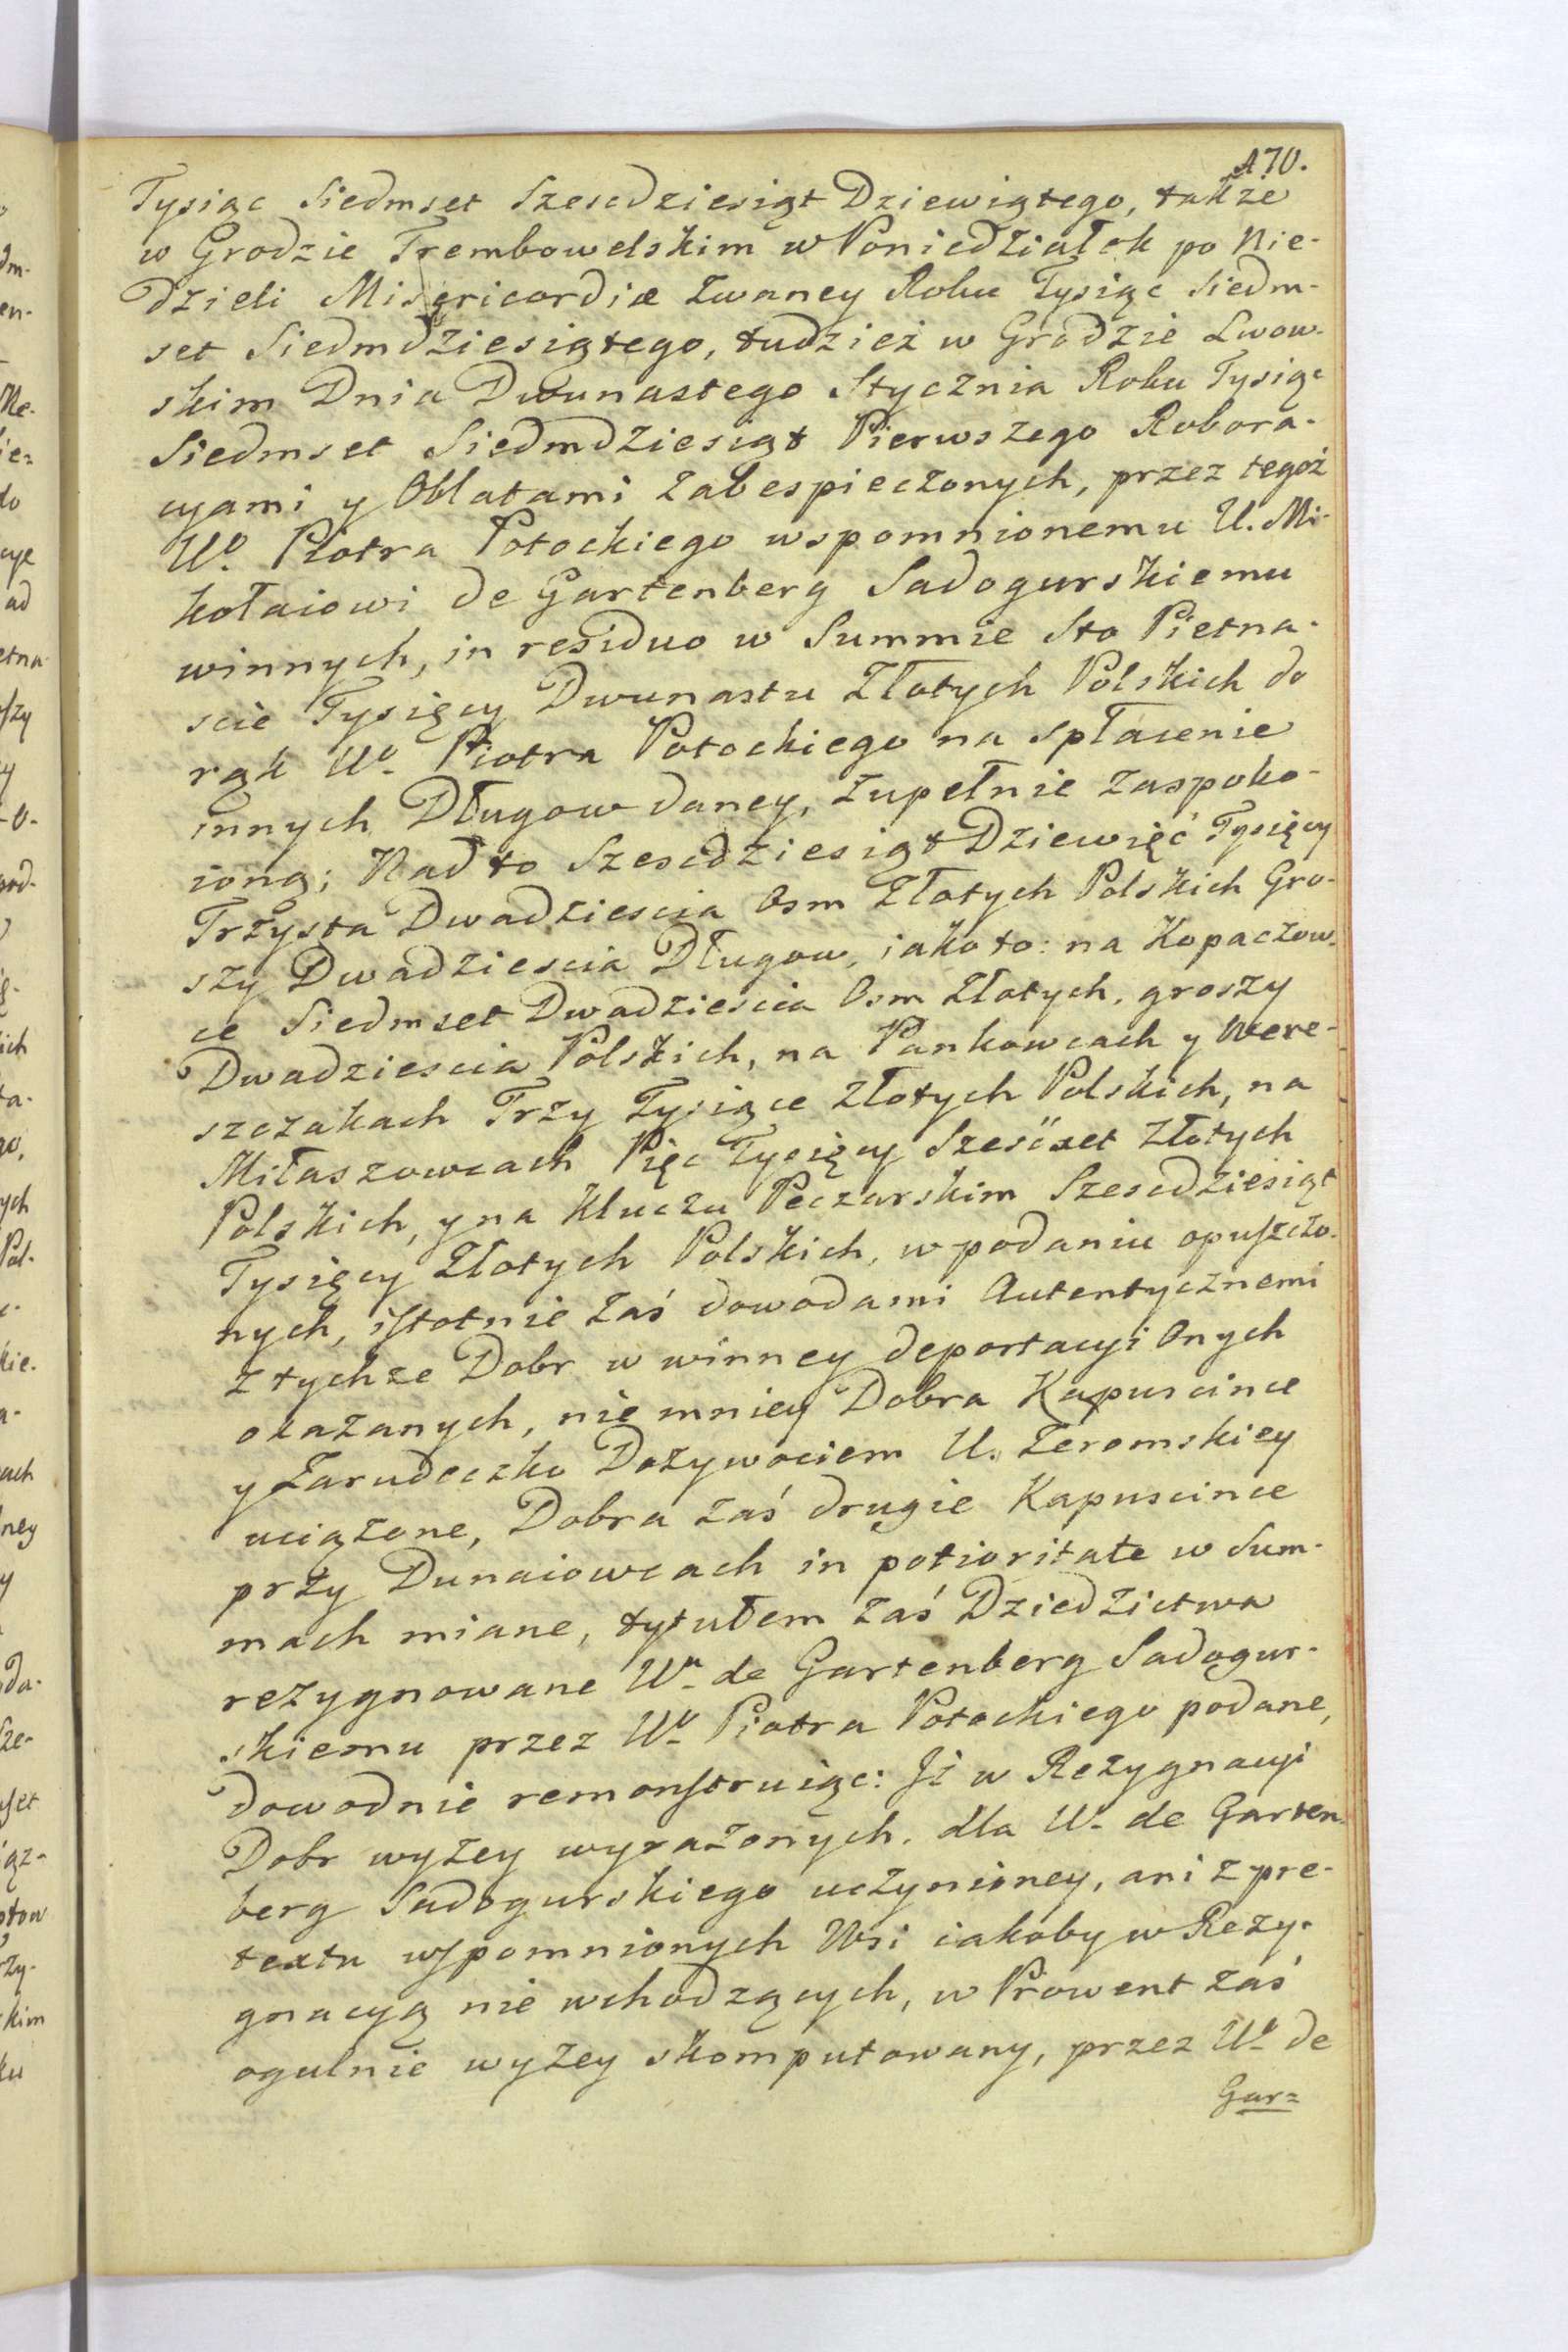 470.
Tysiąc Siedmset Szescdziesiąt Dziewiątego, także
w Grodzie Trembowelskim w Poniedziałek po Nie-
dzieli Misericordiæ zwaney Roku Tysiąc Siedm-
set Siedmdziesiątego, tudzież w Grodzie Lwow-
skim Dnia Dwunastego Stycznia Roku Tysiąc
Siedmset Siedmdziesiąt Pierwszego Robora-
cyami y Oblatami zabespieczonych, przez tegoż
Wo. Piotra Potockiego wspomnionemu U. Mi-
kołaiowi de Gartenberg Sadogurskiemu
winnych, in residuo w Summie Sto Pietna-
scie Tysięcy Dwunastu Złotych Polskich do
rąk Wo. Piotra Potockiego na spłacenie
innych Długow daney, zupełnie zaspoko-
ioną; Nad to Szescdziesiąt Dziewięć Tysięcy
Trzysta Dwadziescia Osm Złotych Polskich Gro-
szy Dwadziescia Długow, iako to: na Kopaczow-
ce Siedmset Dwadziescia Osm Złotych, groszy
Dwadziescia Polskich, na Pankowcach y Were-
szczakach Trzy Tysiące Złotych Polskich, na
Miłaszowcach Pięc Tysięcy Szesćset Złotych
Polskich, y na Kluczu Peczarskim Szescdziesiąt
Tysięcy Złotych Polskich, w podaniu opuszczo-
nych, istotnie zaś dowodami Autentycznemi
z tychże Dobr w winney deportacyi Onych
okazanych, nie mniey Dobra Kapuscince
y Zarudeczko Dożywociem U. Żeromskiey
uciążone, Dobra zaś drugie Kapuscince
przy Dunaiowcach in potioritate w Sum-
mach miane, tytułem zaś Dziedzictwa
rezygnowane Wu. de Gartenberg Sadogur-
skiemu przez Wo. Piotra Potockiego podane,
dowodnie remonstruiąc: Iż w Rezygnacyi
Dobr wyżey wyrażonych, dla Wo. de Garten-
berg Sadogurskiego uczynioney, ani z pre-
textu wspomnionych Wsi iakoby w Rezy-
gnacyą nie wchodzących, w Prowent zaś
ogulnie wyżey skomputowany, przez Wo. de
Gar=